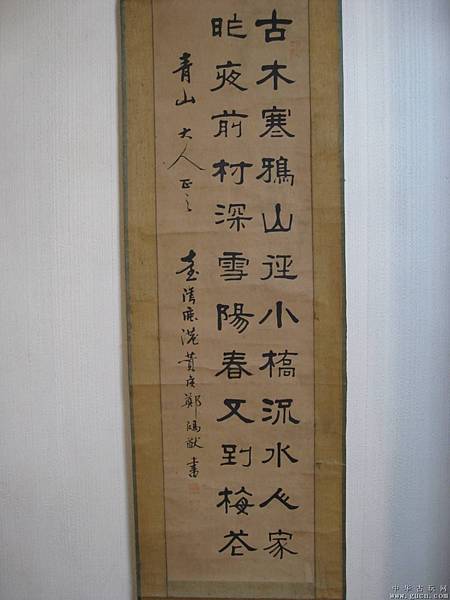 古木寒鴉山徑小橋流水人家
昨夜前村深雪陽春又到梅花
青山大人正之
臺湾鹿港鄭鴻猷書
中华古玩网
www.gucn.com